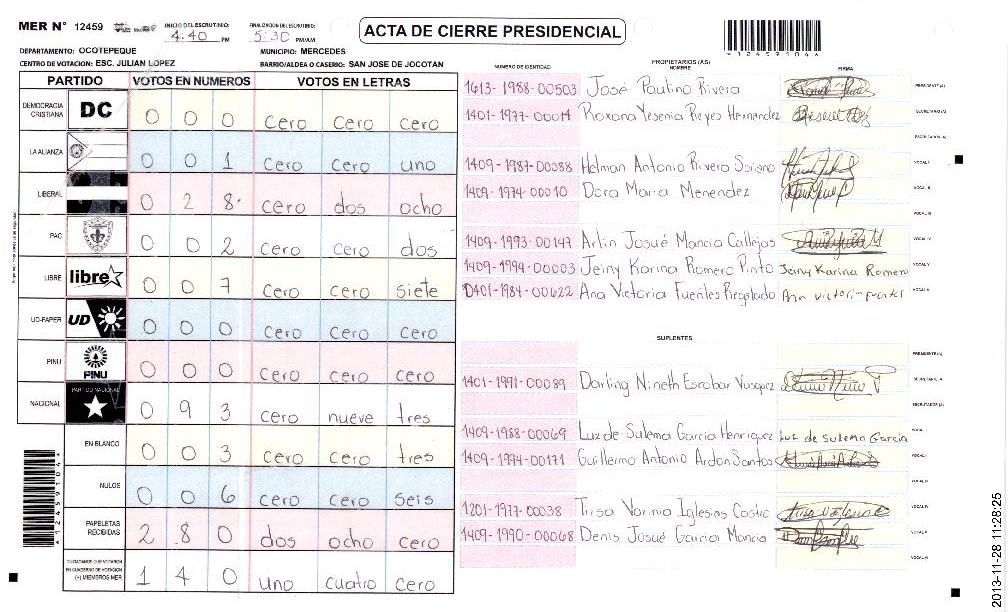 MER N° 12459
INICIO DEL ESCRUTINIO: 4:40 PM
FINALIZACION DEL ESCRUTINIO: 5:30 PM/AM
ACTA DE CIERRE PRESIDENCIAL
*12459104*
DEPARTAMENTO: OCOTEPEQUE
MUNICIPIO: MERCEDES
CENTRO DE VOTACION: ESC. JULIAN LOPEZ
BARRIO/ALDEA O CASERIO: SAN JOSE DE JOCOTAN
PARTIDO VOTOS EN NUMEROS VOTOS EN LETRAS
DEMOCRACIA CRISTIANA DC 0 0 0 cero cero cero
LA ALIANZA 0 0 1 cero cero uno
LIBERAL 0 2 8 cero dos ocho
PAC 0 0 2 cero cero dos
LIBRE libre 0 0 7 cero cero siete
UD-FAPER UD 0 0 0 cero cero cero
PINU PINU 0 0 0 cero cero cero
NACIONAL PARTIDO NACIONAL 0 9 3 cero nueve tres
EN BLANCO 0 0 3 cero cero tres
NULOS 0 0 6 cero cero seis
PAPELETAS RECIBIDAS 2 8 0 dos ocho cero
CIUDADANOS QUE VOTARON EN CUADERNO DE VOTACION (+) MIEMBROS MER 1 4 0 uno cuatro cero
*12459104*
PROPIETARIOS (AS)
NUMERO DE IDENTIDAD NOMBRE FIRMA
1413-1988-00503 José Paulino Rivera PRESIDENTE (A)
1401-1977-00014 Roxana Yesenia Reyes Hernandez SECRETARIO (A)
ESCRUTADOR (A)
1409-1987-00088 Helman Antonio Rivera Soriano VOCAL I
1409-1974-00010 Dora Maria Menendez VOCAL II
VOCAL III
1409-1993-00147 Arlin Josué Mancia Callejas VOCAL IV
1409-1994-00003 Jeiny Karina Romero Pinto Jeiny Karina Romero VOCAL V
0401-1984-00622 Ana Victoria Fuentes Ana victoria fuentes
SUPLENTES
PRESIDENTE (A)
1401-1991-00089 Darling Nineth Escobar Vasquez SECRETARIO (A)
ESCRUTADOR (A)
1409-1988-00069 Luz de Sulema Garcia Henriquez Luz de Sulema Garcia VOCAL I
1409-1994-00171 Guillermo Antonio Ardon Santos
VOCAL III
1201-1977-00038 Tirsa Varinia Iglesias VOCAL IV
1409-1990-00068 Denis Josué Garcia Mancia VOCAL V
VOCAL VI
2013-11-28 11:28:25